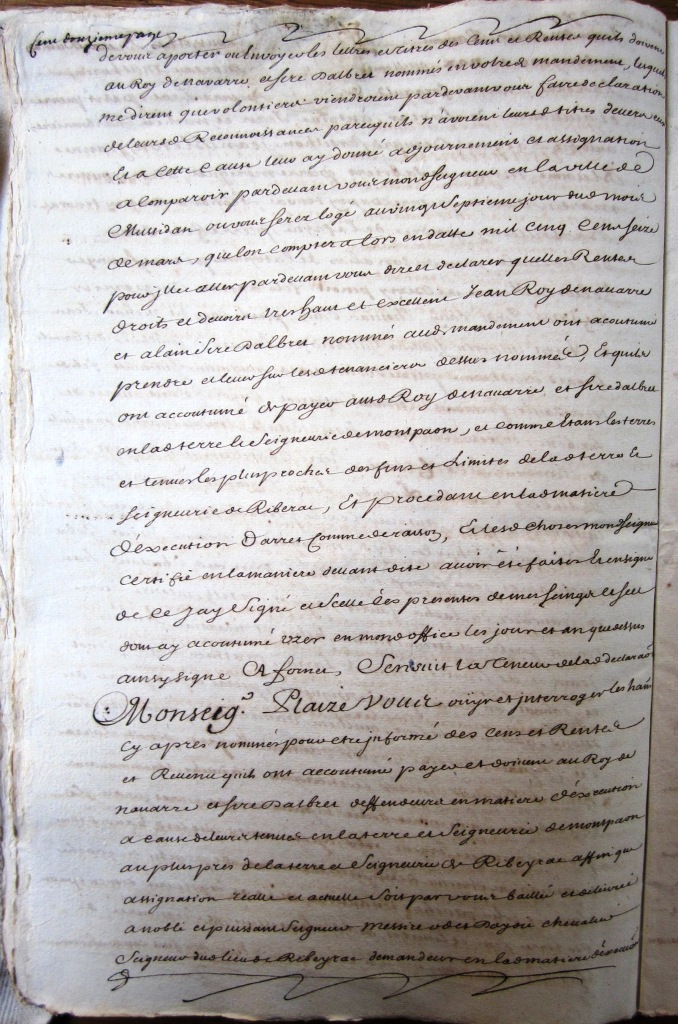 Cent douzieme page
devour aporter ou Envoyer les lettres et titres des Cens et Rentes quils doivent
au Roy denavarre et sire Dalbret nommés en votred mandement, lesquels
me dirent que volontiers viendroient pardevant vous faire declaration
de leurs Reconnoissances parcequils n'avoient leursd titres devers eux
Et a Cette Cause leur ay donné adjournement et assignation
a Comparoir pardevant vous mondseigneur en la ville de
Mussidan ou vous serez logé au vingt Septieme jour dud mois
de mars, que lon comptera lors en datte mil cinq Cens seize
pour Illec aller pardevant vous dire et declarer quelles Rentes
droits et devoirs tres haut et excellent Jean Roy denavarre
et alain Sire Dalbret nommés aud mandement ont acoutumé
prendre et lever sur lesd tenanciers dessus nommés, Et quils
ont accoutumé de payer aud Roy denavarre et sire dalbret
en lad terre & Seigneurie de montpaon, et comme Etans les terres
et tenues les plus proches des fins et Limites de lad terre &
seigneurie de Riberac, Et procedant en lad matiere
d'execution D'arret Comme de raison, Et lesd choses mondseigneur
certifie en la maniere devant dite avoir été faites En enseigne
de Ce Jay Signé et Scellé les presentes de mes seings et scel
dont ay acoutumé uzer en mond office les jour et an que dessus
ainsy signé A fornes, Sensuit la teneur de lad declaraõn
Monseigr. Plaize vous ouïr et jnterroger les hans
cy apres nommés pour etre jnformé des cens et Rentes
et Revenu quils ont accoutumé payer et doivent au Roy de
navarre et sire Dalbret deffendeurs en matiere d'execution
a cause de leurs tenues en la terre et Seigneurie de montpaon
au plus pres de la terre et Seigneurie de Ribeyrac affin que
assignation realle et actuelle soit par vous baillée et delivrée
a noble et puissant Seigneur messire odet Daydie chevalier
Seigneur dud lieu de Ribeyrac demandeur en lad matiere d'execuõn